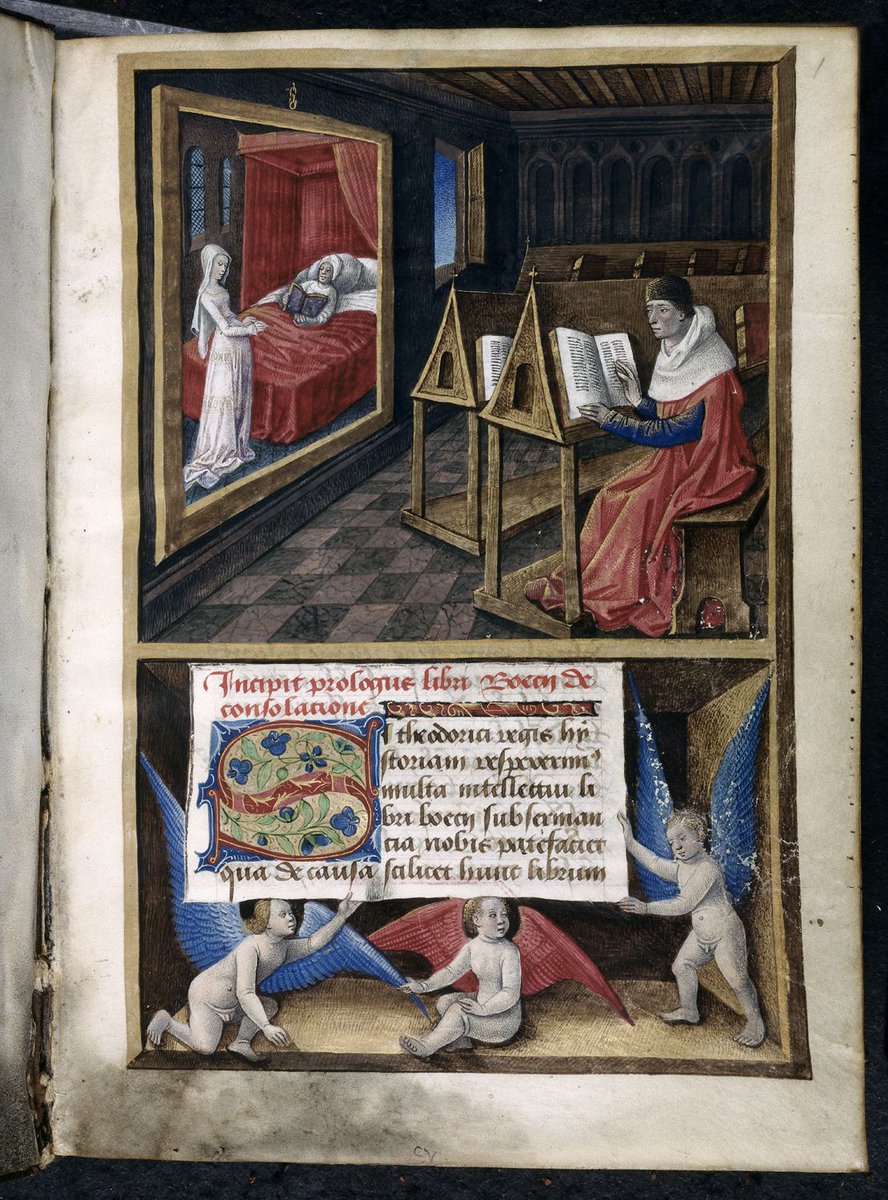 1
Incipit prologus libri Boecij de
consolacione
Si theodorici regis hy
storiam respexerimꝰ
multa intellectui li
bri boecij subserman
cia nobis patefaciet
qua de causa scilicet hunc librum